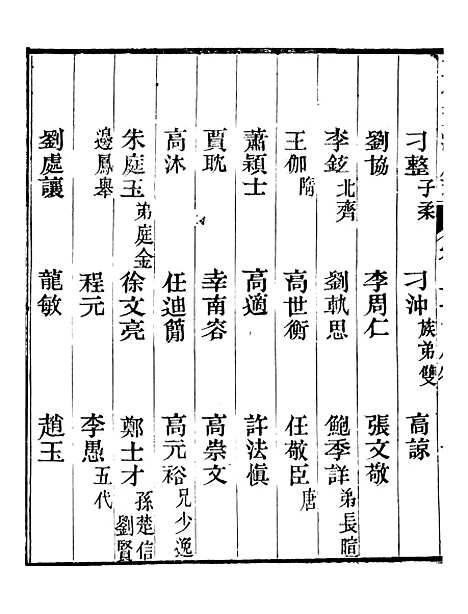 刁整子柔 刁沖族弟雙 高諒
劉協 李周仁 張文敬
李鉉北齊 劉軌思 鮑季詳弟長暄
王伽隋 高世衡 任敬臣唐
蕭穎士 高適 許法慎
賈耽 幸南容 高崇文
高沐 任迪簡 高元裕兄少逸
朱庭玉弟庭金 徐文亮 鄭士才孫楚信 劉賢
邊鳳舉 程元 李愚五代
劉處讓 龍敏 趙玉